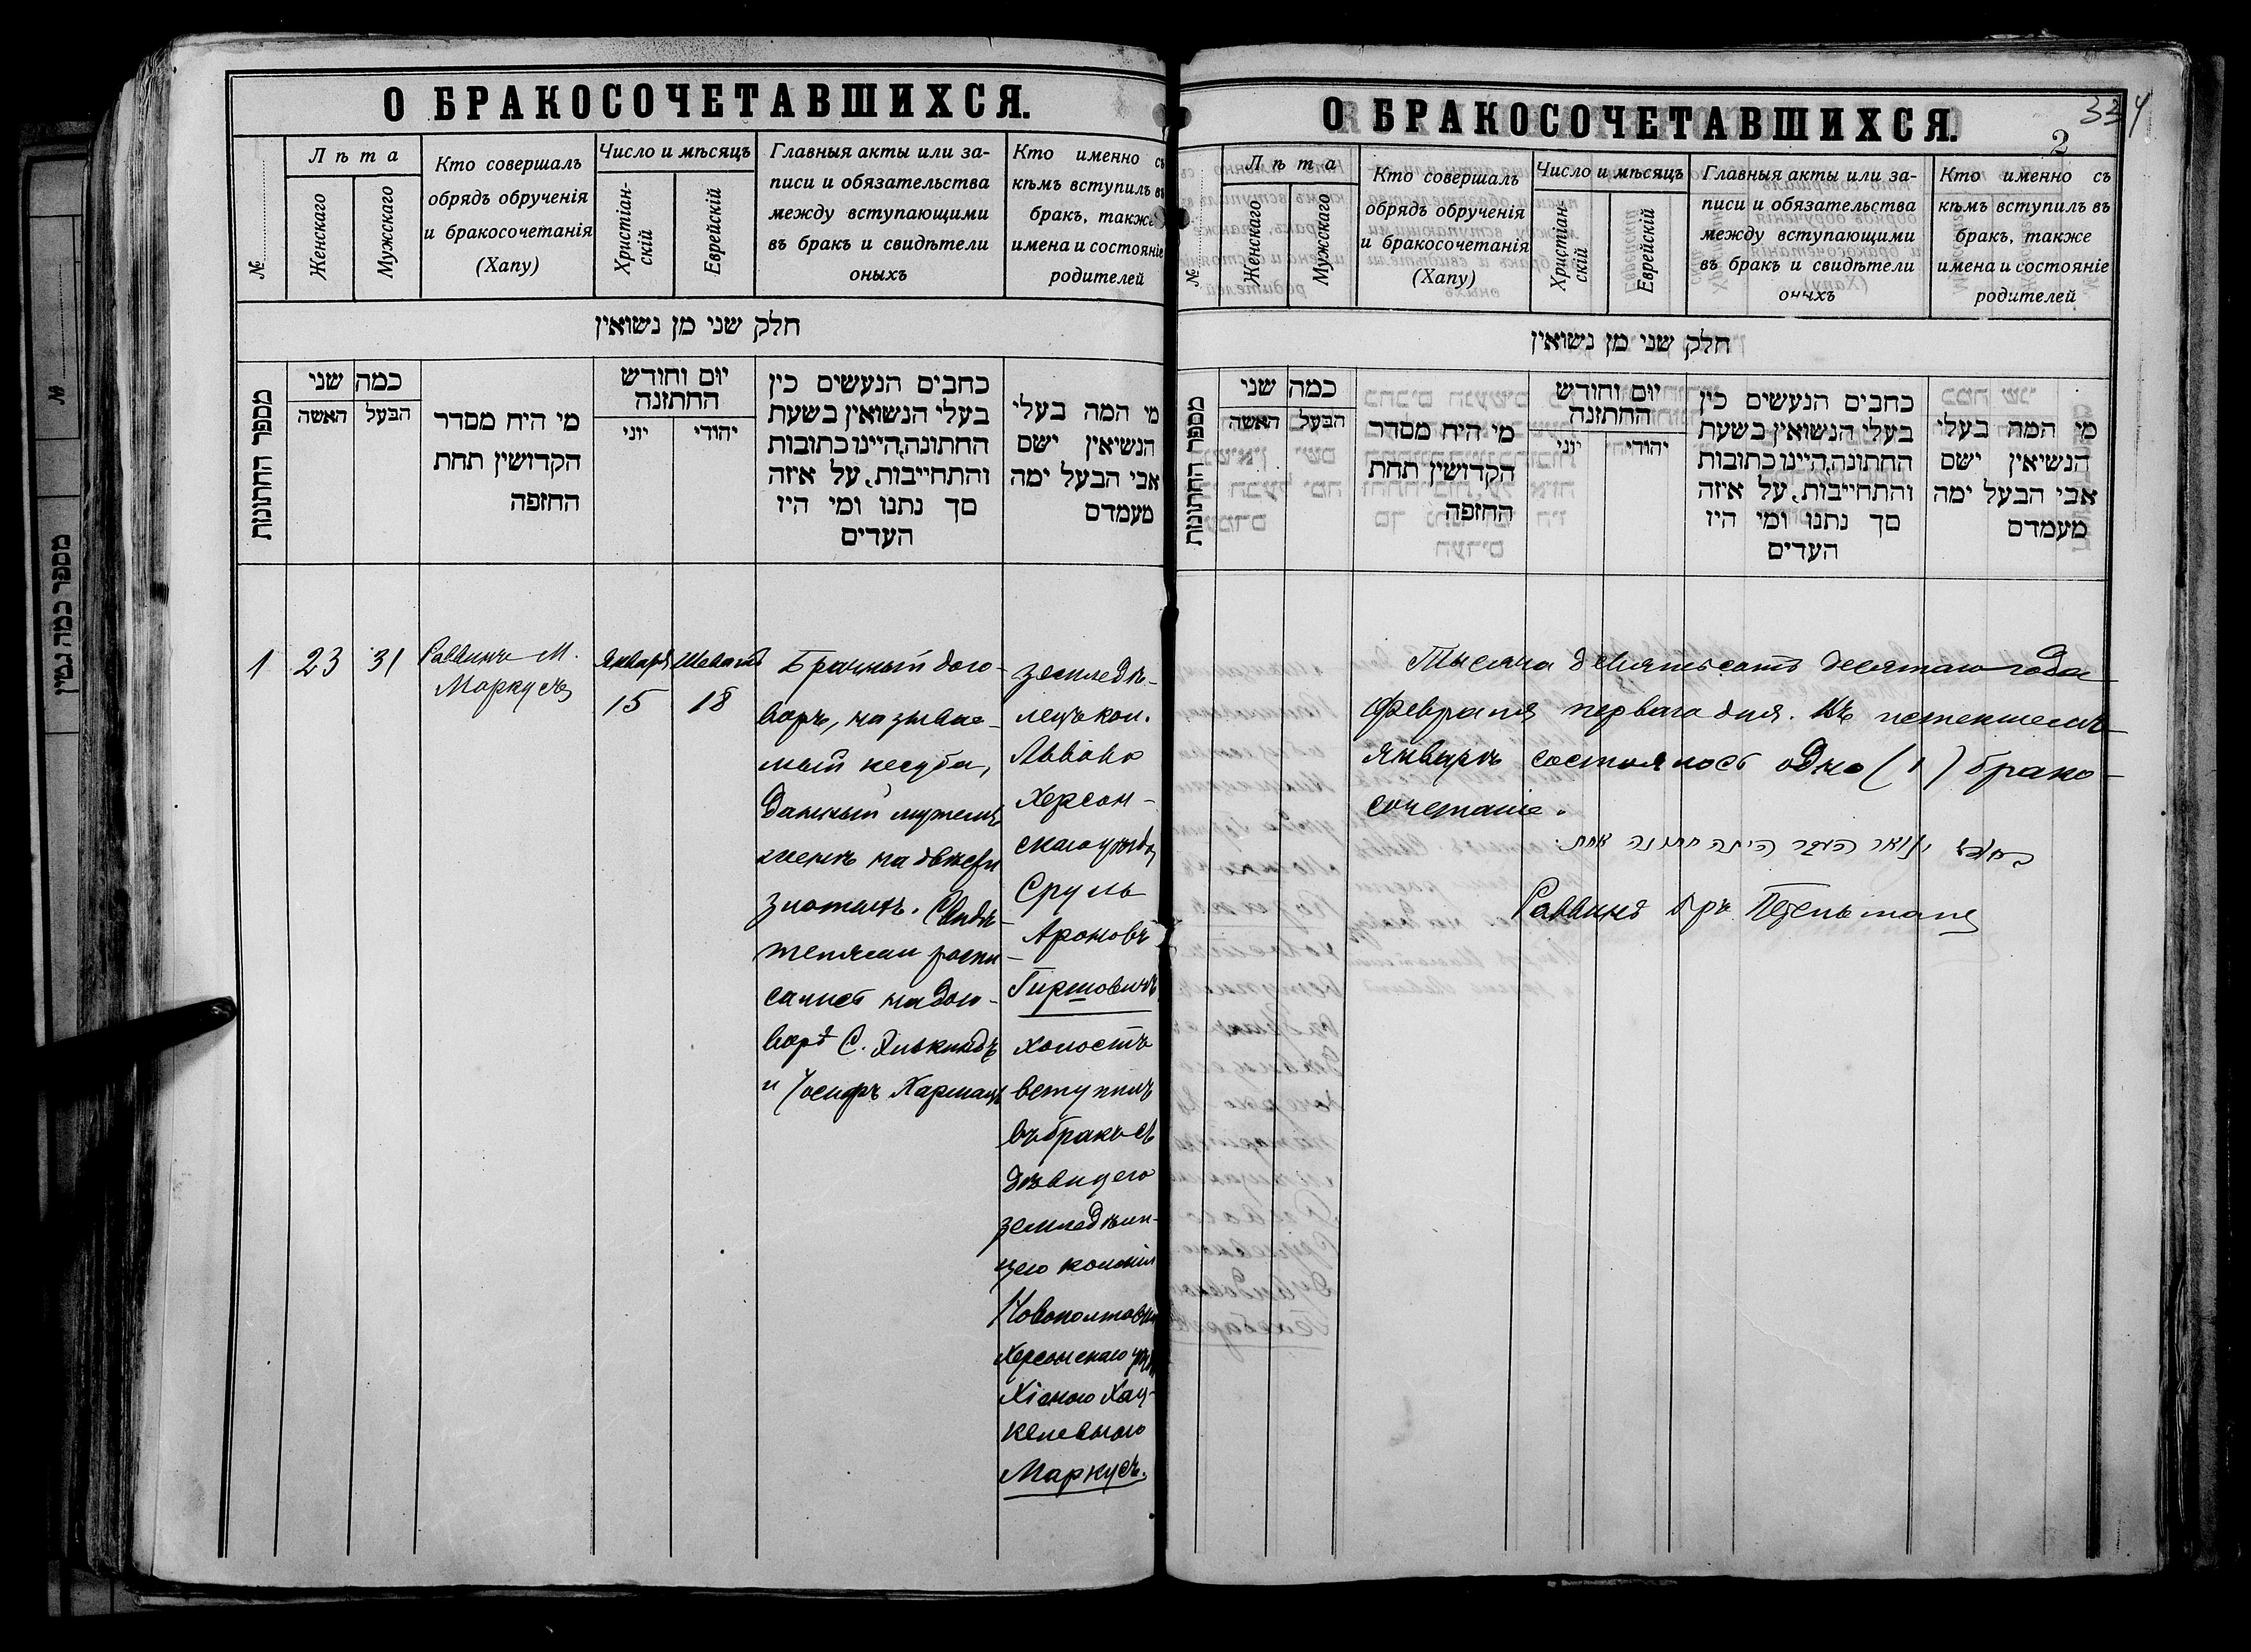 О БРАКОСОЧЕТАВШИХСЯ.
№
Лѣта
Женскаго
Мужскаго
Кто совершалъ
обрядъ обрученія
и бракосочетанія
(Хапу)
Число и мѣсяцъ
Христіан-
скій
Еврейскій
Главныя акты или за-
писи и обязательства
между вступающими
въ бракъ и свидѣтели
оныхъ
Кто именно съ
кѣмъ вступилъ въ
бракъ, также
имена и состояніе
родителей
חלק שני מן נשואין
מספר החתונות
כמה שני
האשה
הבעל
מי היח מסדר
הקדושין תחת
החזפה
יום וחודש
החתזנה
יוני
יהודי
כחבים הנעשים כין
בעלי הנשואין בשעת
החתונה,היינו כתובות
והתחייבות, על איזה
סך נתנו ומי היז
העדים
מי המה בעלי
הנשיאין ישם
אבי הבעל ימה
מעמדם
1
23
31
Раввинъ М.
Маркусъ
Января
15
Шевать
18
Брачный дого-
воръ, называе-
мый кесуба,
данный мужемъ
женѣ на двѣсти
злотыхъ. Свидѣ-
телями распи-
сались на дого-
ворѣ С.
и Іосифъ Хармацъ
земледѣ-
лецъ кол.
Львово
Херсон-
скаго уѣзда,
Сруль
Ароновъ
Гиршовичъ
холостъ
вступилъ
въ бракъ съ
дѣвицею
земледѣли-
цею колоніи
Новополтавки
Херсонскаго уѣзда
Хіеною Хац-
келевною
Маркусъ.
О БРАКОСОЧЕТАВШИХСЯ.
334
2
№
Лѣта
Женскаго
Мужскаго
Кто совершалъ
обрядъ обрученія
и бракосочетанія
(Хапу)
Число и мѣсяцъ
Христіан-
скій
Еврейскій
Главныя акты или за-
писи и обязательства
между вступающими
въ бракъ и свидѣтели
ончхъ
Кто именно съ
кѣмъ вступилъ въ
бракъ, также
имена и состояніе
родителей
חלק שני מן נשואין
מספר החתונות
כמה שני
האשה
הבעל
מי היח מסדר
הקדושין תחת
החזפה
יום וחודש
החתזנה
יוני
יהודי
כחבים הנעשים כין
בעלי הנשואין בשעת
החתונה,היינו כתובות
והתחייבות, על איזה
סך נתנו ומי היז
העדים
מי המה בעלי
הנשיאין ישם
אבי הבעל ימה
מעמדם
Тысяча девятьсотъ десятаго года
февраля перваго дня. Въ истекшемъ
январѣ состоялось одно (1) брако-
сочетаніе.
בחדש ינואר העבר היתה חתונה אחת.
Раввинъ
№
מספר כמה נשיץ